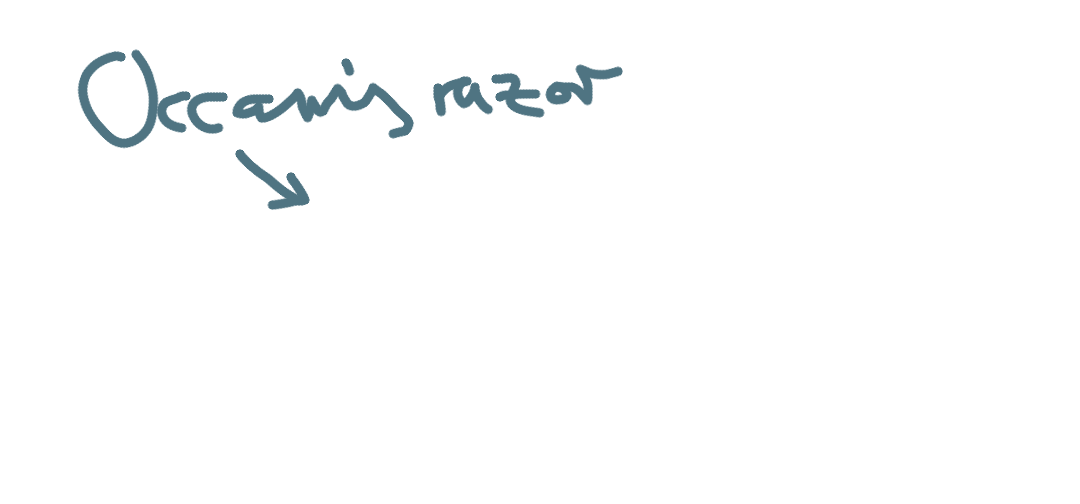 Occam's razor